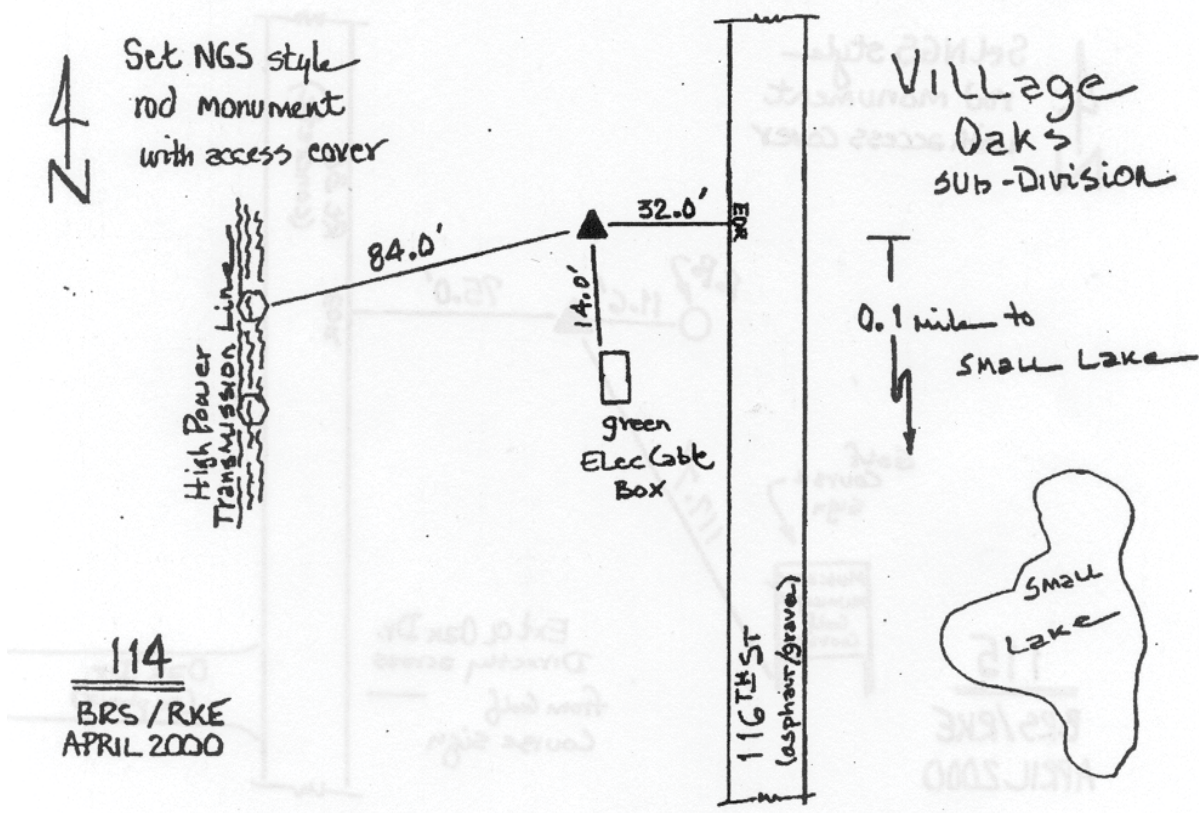 Set NGS style
rod monument
with access cover
N
Village
Oaks
SUB-DIVISION
32.0'
EOR
84.0'
14.0'
High Power
Transmission Line
green
Elec Cable
Box
0.1 mile to
Small Lake
Small
Lake
116TH ST
(asphalt/gravel)
114
BRS/RKE
APRIL 2000